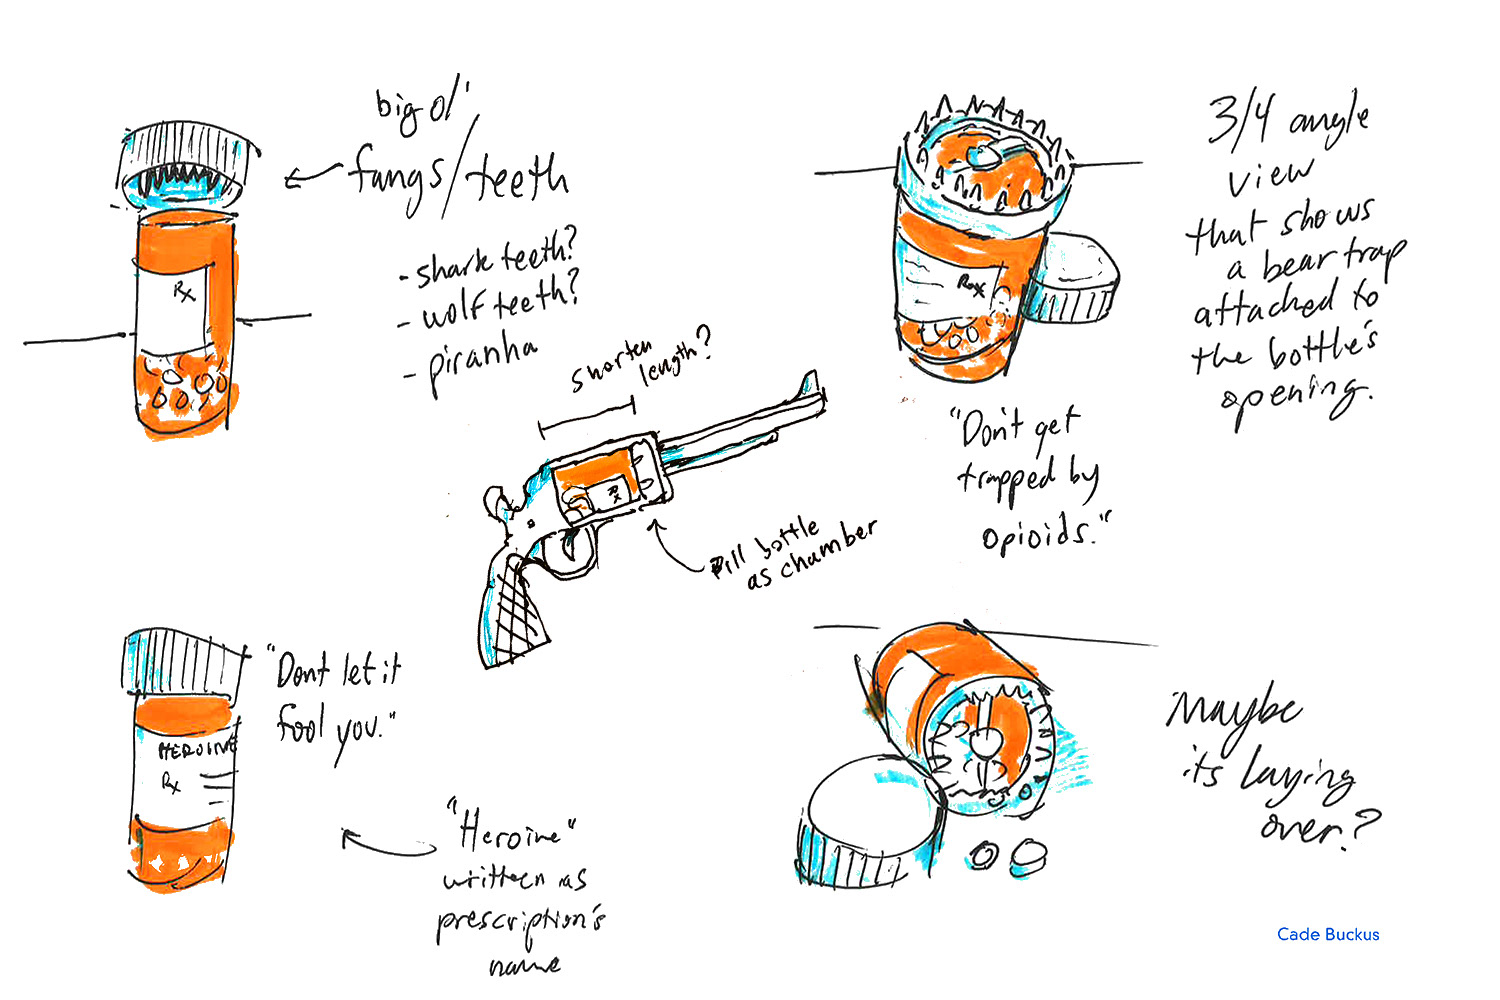 big ol'
fangs/teeth
- shark teeth?
- wolf teeth?
- piranha
Rx
shorten
length?
Rx
pill bottle
as chamber
3/4 angle
view
that shows
a bear trap
attached to
the bottle's
opening.
Rx
"Don't get
trapped by
opioids."
"Dont let it
fool you."
HEROINE
Rx
"Heroine"
written as
prescription's
name
Maybe
its laying
over?
Cade Buckus